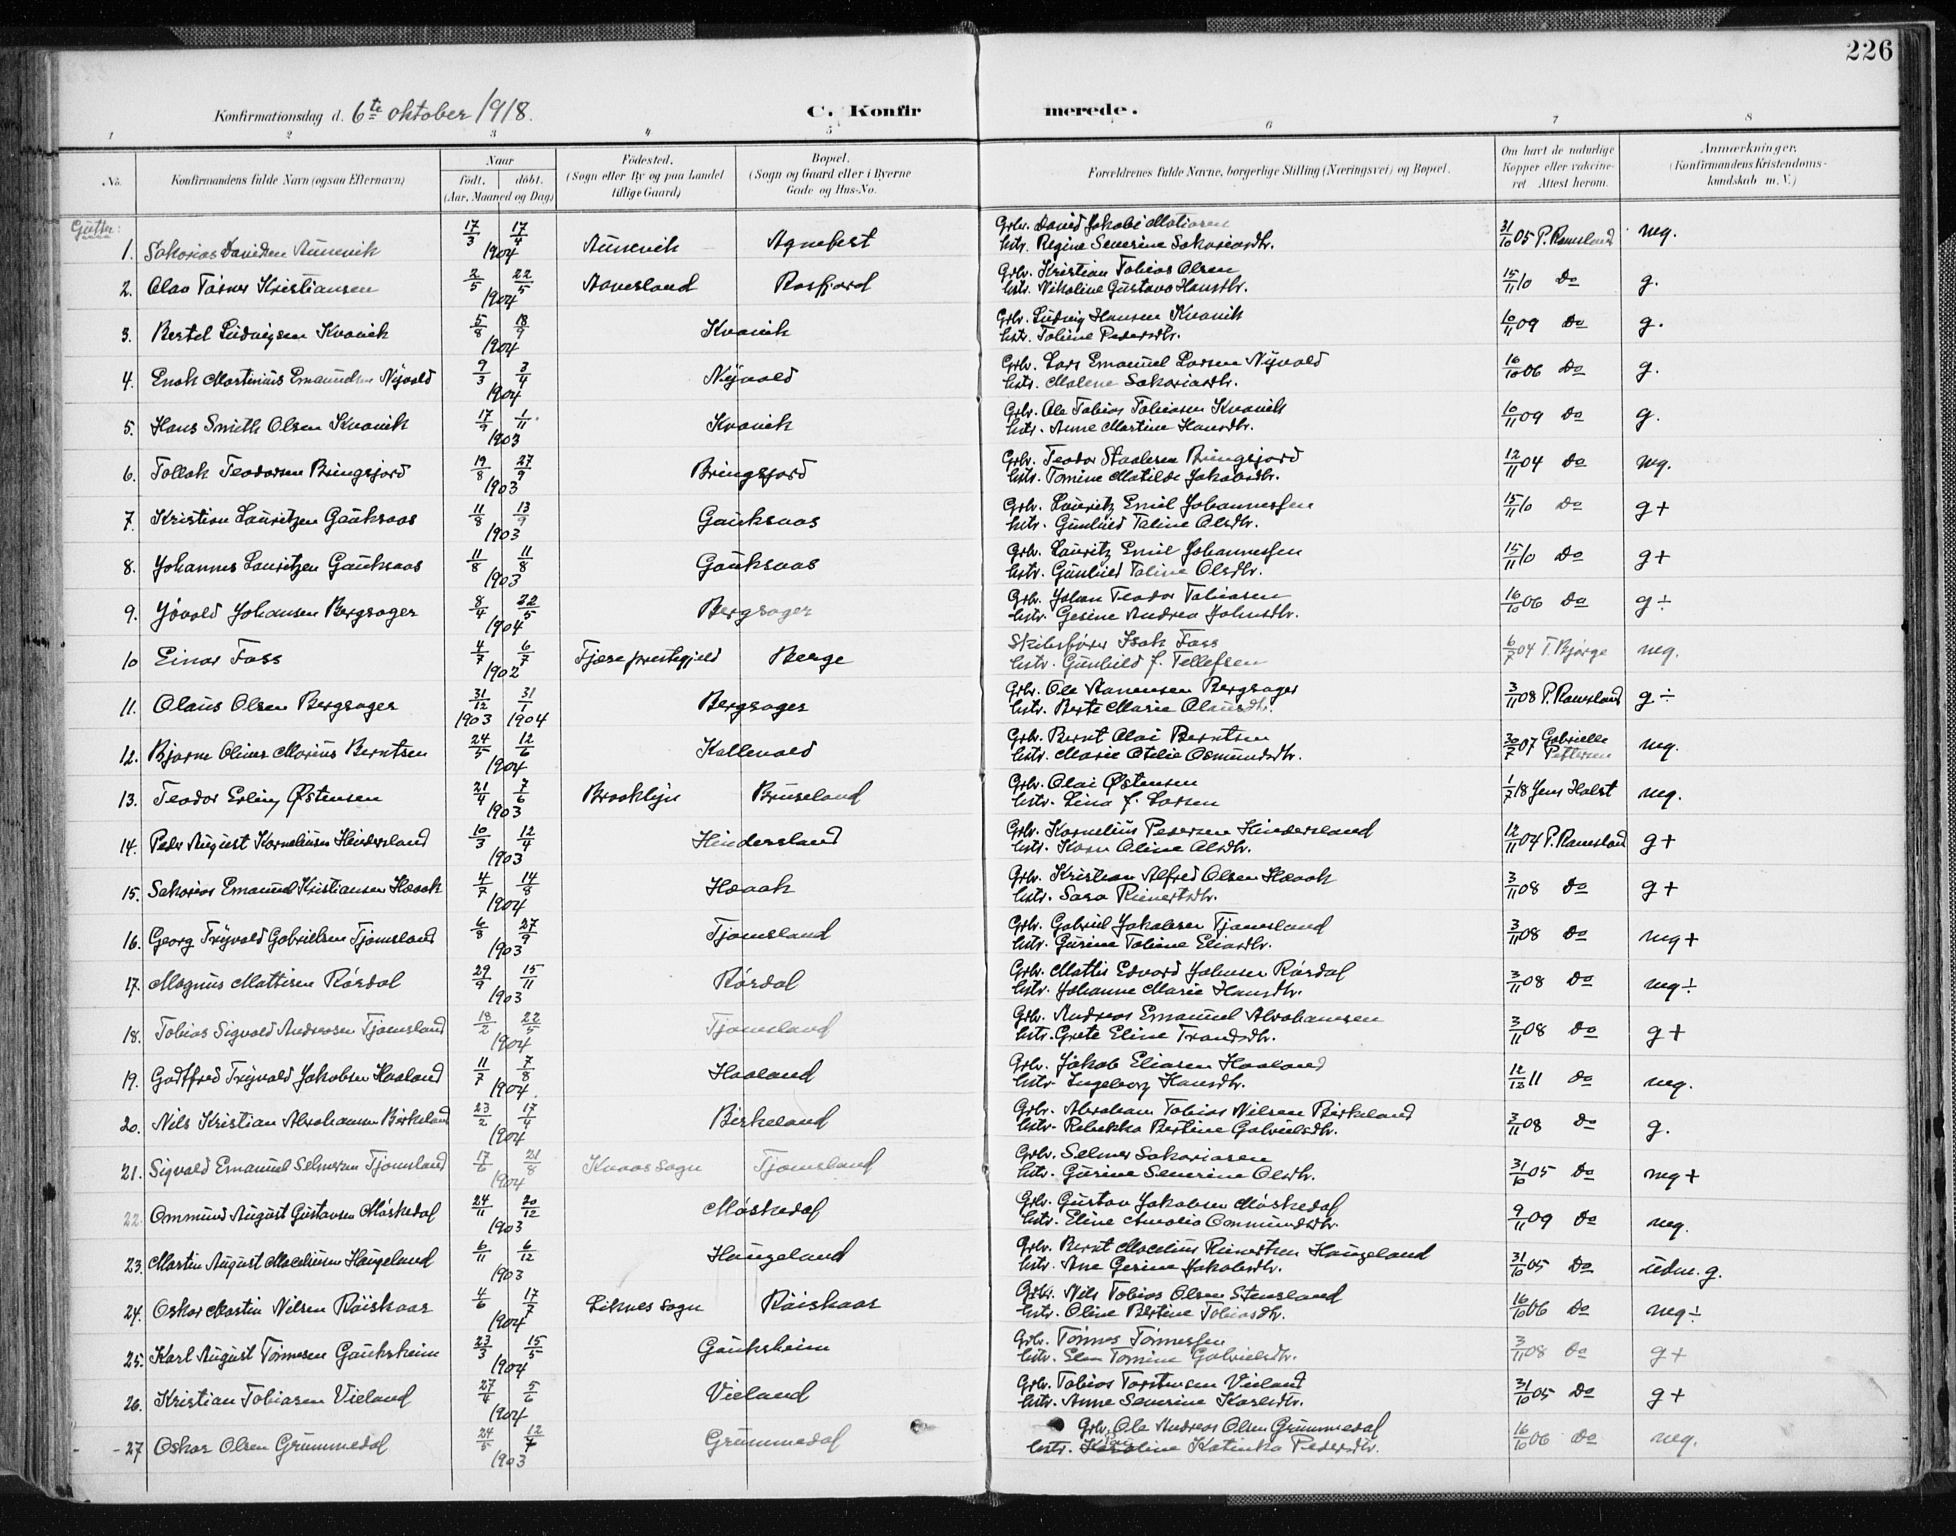 226
Konfirmationsdag d. 6te oktober 1918.
C. Konfirmerede.
1 2 3 4 5 6 7 8
No. Konfirmandens fulde Navn (ogsaa Efternavn) Naar født, døbt. (Aar, Maaned og Dag) Fødested. (Sogn eller By og paa Landet tillige Gaard) Bopæl. (Sogn og Gaard eller i Byerne Gade og Hus-No. Forældrenes fulde Navne, borgerlige Stilling (Næringsvei) og Bopæl. Om havt de naturlige Kopper eller vakcineret. Attest herom. Anmærkninger. (Konfirmandens Kristendomskundskab m. V.)
Gutter:
1. Sakarias Davidsen Aunevik 17/3 17/4 1904 Aunevik Agnefest Grbr. David Jakobi Matiasen
Hstr. Regine Severine Sakariasdtr. 31/10 05 P. Ramsland mg.
2. Olav Tarner Kristiansen 2/5 22/5 1904 Aavesland Rosfjord Grbr. Kristian Tobias Olsen
Hstr. Nikoline Gustava Hansdtr. 15/11 10 Do g.
3. Bertel Ludvigsen Kvavik 5/8 18/9 1904 Kvavik Grbr. Ludvig Hansen Kvavik
Hstr. Toline Pedersdtr. 10/11 09 Do g.
4. Enok Martinius Emanuelsen Nyvold 9/3 3/4 1904 Nyvold Grbr. Lars Emanuel Larsen Nyvold
Hstr. Malene Sakariasdtr. 16/10 06 Do g.
5. Hans Smith Olsen Kvavik 17/9 1/11 1903 Kvavik Grbr. Ole Tobias Tobiasen Kvavik
Hstr. Anne Martine Hansdtr. 10/11 09 Do g.
6. Tollak Teodorsen Bringsjord 19/8 27/9 1903 Bringsjord Grbr. Teodor Staalesen Bringsjord
Hstr. Tomine Matilde Jakobsdtr. 12/11 04 Do mg.
7. Kristian Lauritzen Gauksaas 11/8 13/9 1903 Gauksaas Grbr. Lauritz Emil Johannessen
Hstr. Gunhild Taline Olsdtr. 15/11 10 Do g+
8. Johannes Lauritzen Gauksaas 11/8 11/8 1903 Gauksaas Grbr. Lauritz Emil Johannessen
Hstr. Gunhild Taline Olsdtr. 15/11 10 Do g+
9. Jovald Johansen Bergsager 8/4 22/5 1904 Bergsager Grbr. Johan Teodor Tobiasen
Hstr. Gesine Andrea Johnsdtr. 16/10 06 Do g÷
10 Einar Foss 4/7 6/7 1902 Fjære prestegjeld Berge Skibsfører Isak Foss
Hstr. Gunhild f. Tellefsen 6/7 04 T. Bjørge mg.
11. Olaus Olsen Bergsager 31/12 1903 31/1 1904 Bergsager Grbr. Ole Aanensen Bergsager
Hstr. Berte Marie Olausdtr. 3/11 08 P. Ramsland g÷
12. Bjarne Oliver Marius Berntsen 24/5 12/6 1904 Kallevold Grbr. Bernt Olai Berntsen
Hstr. Marie Otelie Osmundsdtr. 30/7 07 Gabrielle Pettersen mg.
13. Teodor Erling Østensen 21/4 7/6 1903 Brooklyn Bruseland Grbr. Olai Østensen
Hstr. Lina f. Larsen 1/7 18 Jens Holst mg.
14. Peder August Korneliusen Hindersland 10/3 12/4 1903 Hindersland Grbr. Kornelius Pedersen Hindersland
Hstr. Karn Oline Olsdtr. 12/11 04 P. Ramsland g+
15. Sakarias Emanuel Kristiansen Haaak 4/7 14/8 1904 Haaak Grbr. Kristian Alfred Olsen Haaak
Hstr. Sara Reinertsdtr. 3/11 08 Do g+
16. Georg Trygvald Gabrielsen Tjomsland 6/8 27/9 1903 Tjomsland Grbr. Gabriel Jakobsen Tjomsland
Hstr. Gurine Toline Eliasdtr. 3/11 08 Do mg+
17. Magnus Mathisen Rørdal 29/9 15/11 1903 Rørdal Grbr. Mathis Edvard Johnsen Rørdal
Hstr. Johanne Marie Hansdtr. 3/11 08 Do mg÷
18. Tobias Sigvald Andreasen Tjomsland 18/2 22/5 1904 Tjomsland Grbr. Andreas Emanuel Abrahamsen
Hstr. Grete Eline Trondsdtr. 3/11 08 Do g+
19. Godtfred Trygvald Jakobsen Haaland 11/7 7/8 1904 Haaland Grbr. Jakob Eliasen Haaland
Hstr. Ingeborg Hansdtr. 12/12 11 Do mg.
20. Nils Kristian Abrahamsen Birkeland 23/2 17/4 1904 Birkeland Grbr. Abraham Tobias Nilsen Birkeland
Hstr. Rebekka Bertine Gabrielsdtr. 3/11 08 Do g.
21. Sigvald Emanuel Selmersen Tjomsland 17/6 21/8 1904 Kvaas sogn Tjomsland Grbr. Selmer Sakariasen
Hstr. Gurine Severine Olsdtr. 31/10 05 Do mg+
22. Ommund August Gustavsen Møskedal 24/11 20/12 1903 Møskedal Grbr. Gustav Jakobsen Møskedal
Hstr. Eline Amalia Ommundsdtr. 9/11 09 Do mg.
23. Martin August Maceliusen Haugeland 6/11 6/12 1903 Haugeland Grbr. Bernt Macelius Reinertsen Haugeland
Hstr. Ane Gesine Jakobsdtr. 31/10 05 Do udm. g.
24. Oskar Martin Nilsen Røiskaar 4/6 17/7 1904 Liknes sogn Røiskaar Grbr. Nils Tobias Olsen Stensland
Hstr. Oline Bertine Tobiasdtr. 16/10 06 Do mg÷
25. Karl August Tønnesen Gauksheim 23/3 15/5 1904 Gauksheim Grbr. Tønnes Tønnessen
Hstr. Elen Tomine Gabrielsdtr. 3/11 08 Do g+
26. Kristian Tobiasen Vieland 27/4 5/6 1904 Vieland Grbr. Tobias Torstensen Vieland
Hstr. Anne Severine Karlsdtr. 31/10 05 Do g+
27 Oskar Olsen Grummedal 24/5 12/7 1903 Grummedal Grbr. Ole Andreas Olsen Grummedal
Hstr. Karoline Katinka Pedersdtr. 16/10 06 Do mg.